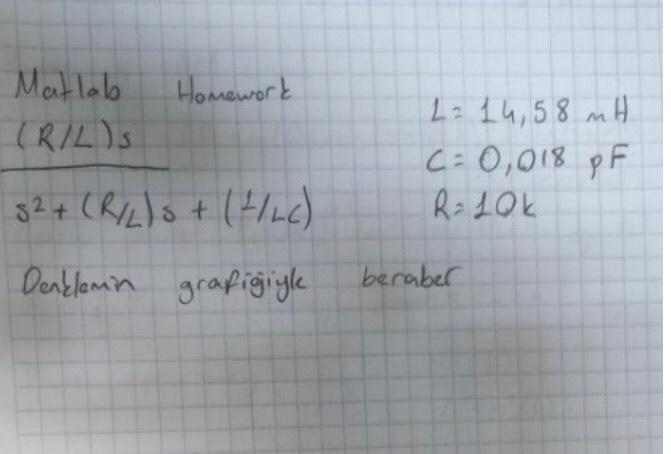 Matlab Homework
(R/L)s
s² + (R/L)s + (1/LC)
L = 14,58 mH
C = 0,018 pF
R = 10k
Denklemin grafiğiyle beraber